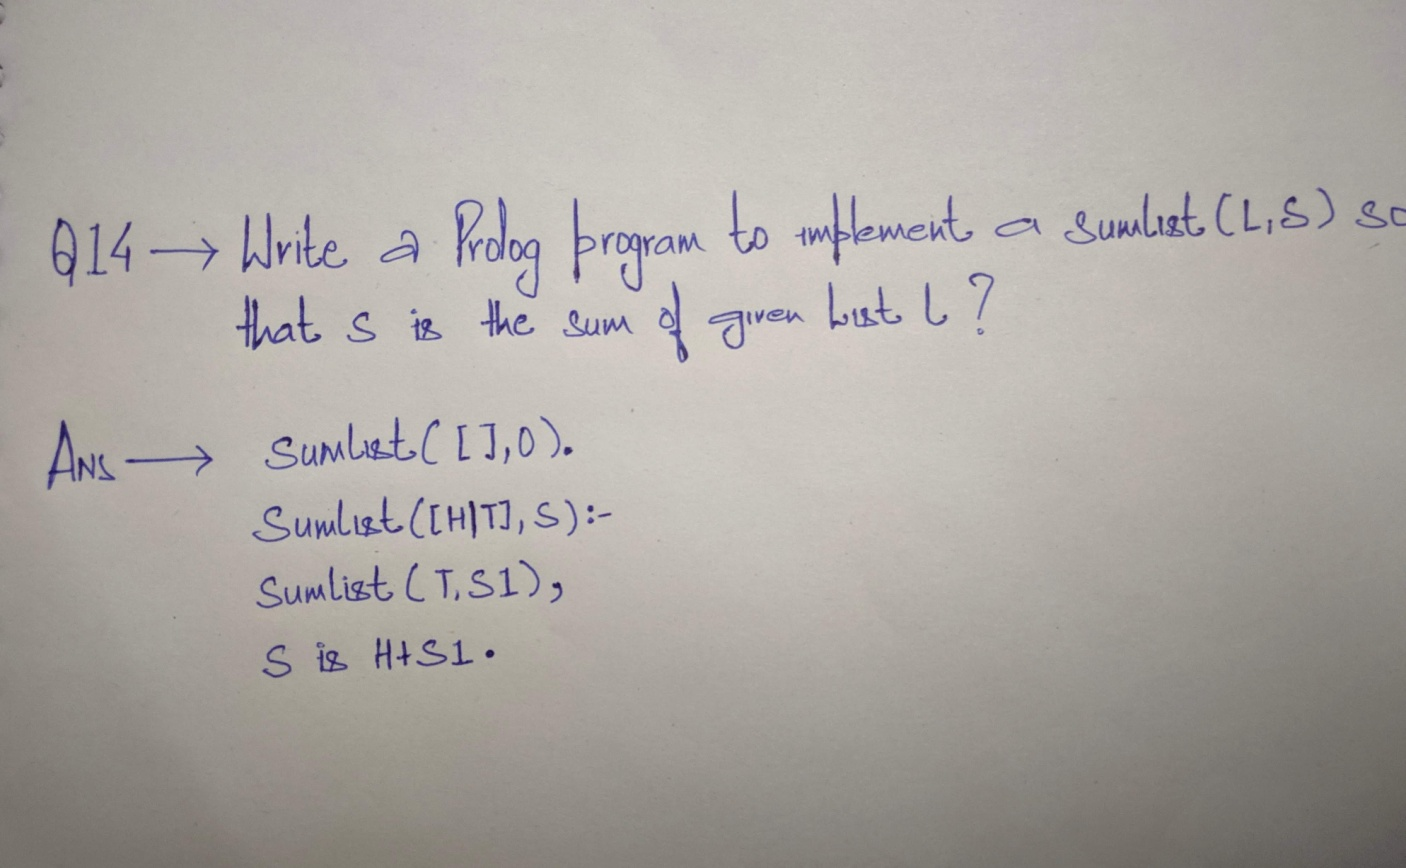 Q14 → Write a Prolog program to implement a sumlist (L,S) so
that S is the sum of given List L ?
Ans → Sumlist ( [ ] , 0 ).
Sumlist ([H|T], S) :-
Sumlist ( T, S1 ) ,
S is H+S1.